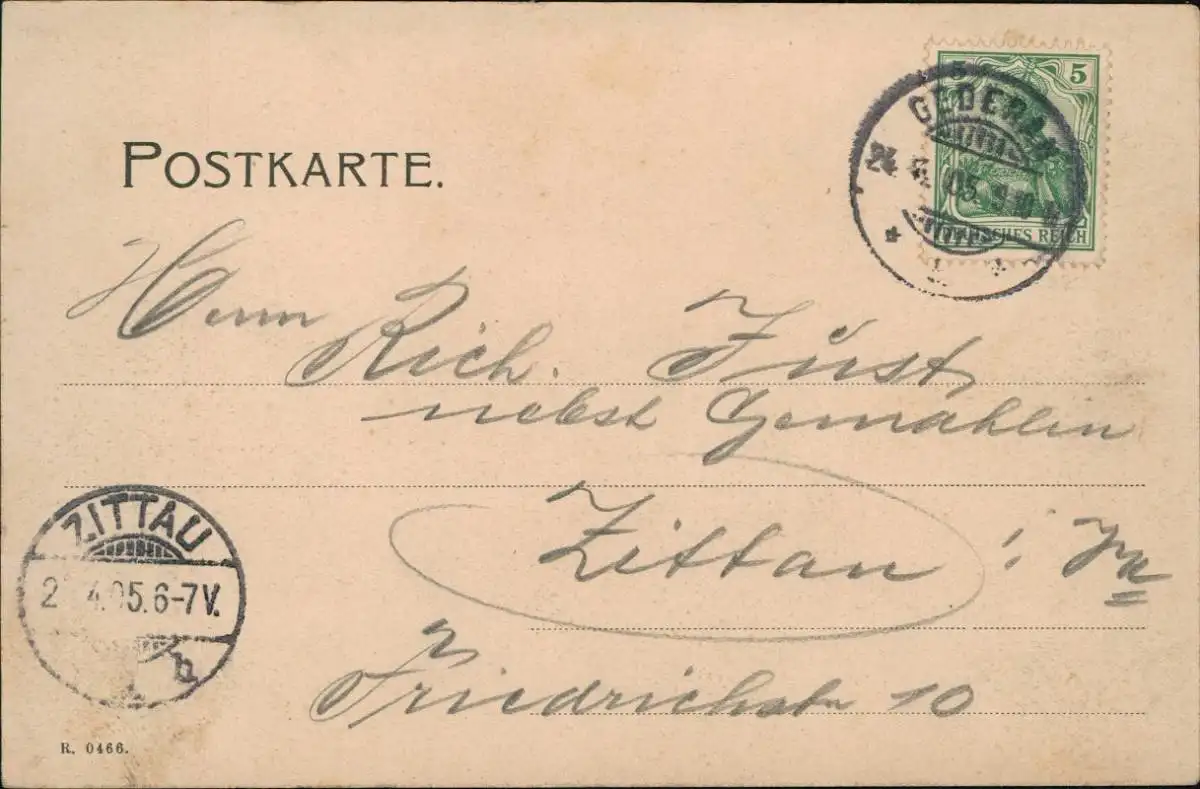 POSTKARTE.
5 5
DEUTSCHES REICH
24. 4. 05. 9-10 N
Herrn Rich. Fürst
nebst Gemahlin
Zittau i. Sa
Friedrichstr 10
ZITTAU
2 4.05.6-7V.
b
R. 0466.